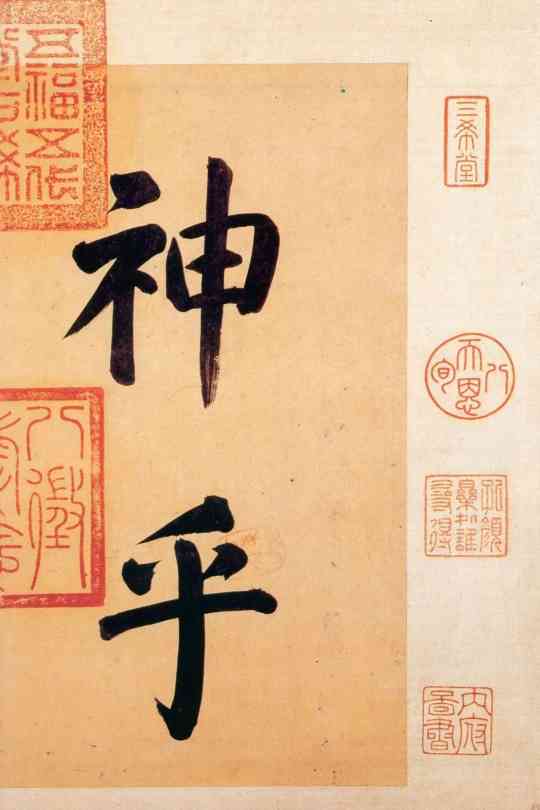 三希堂
天恩八旬
內府圖書
神乎
五福五代
堂古稀
八徵
耄念